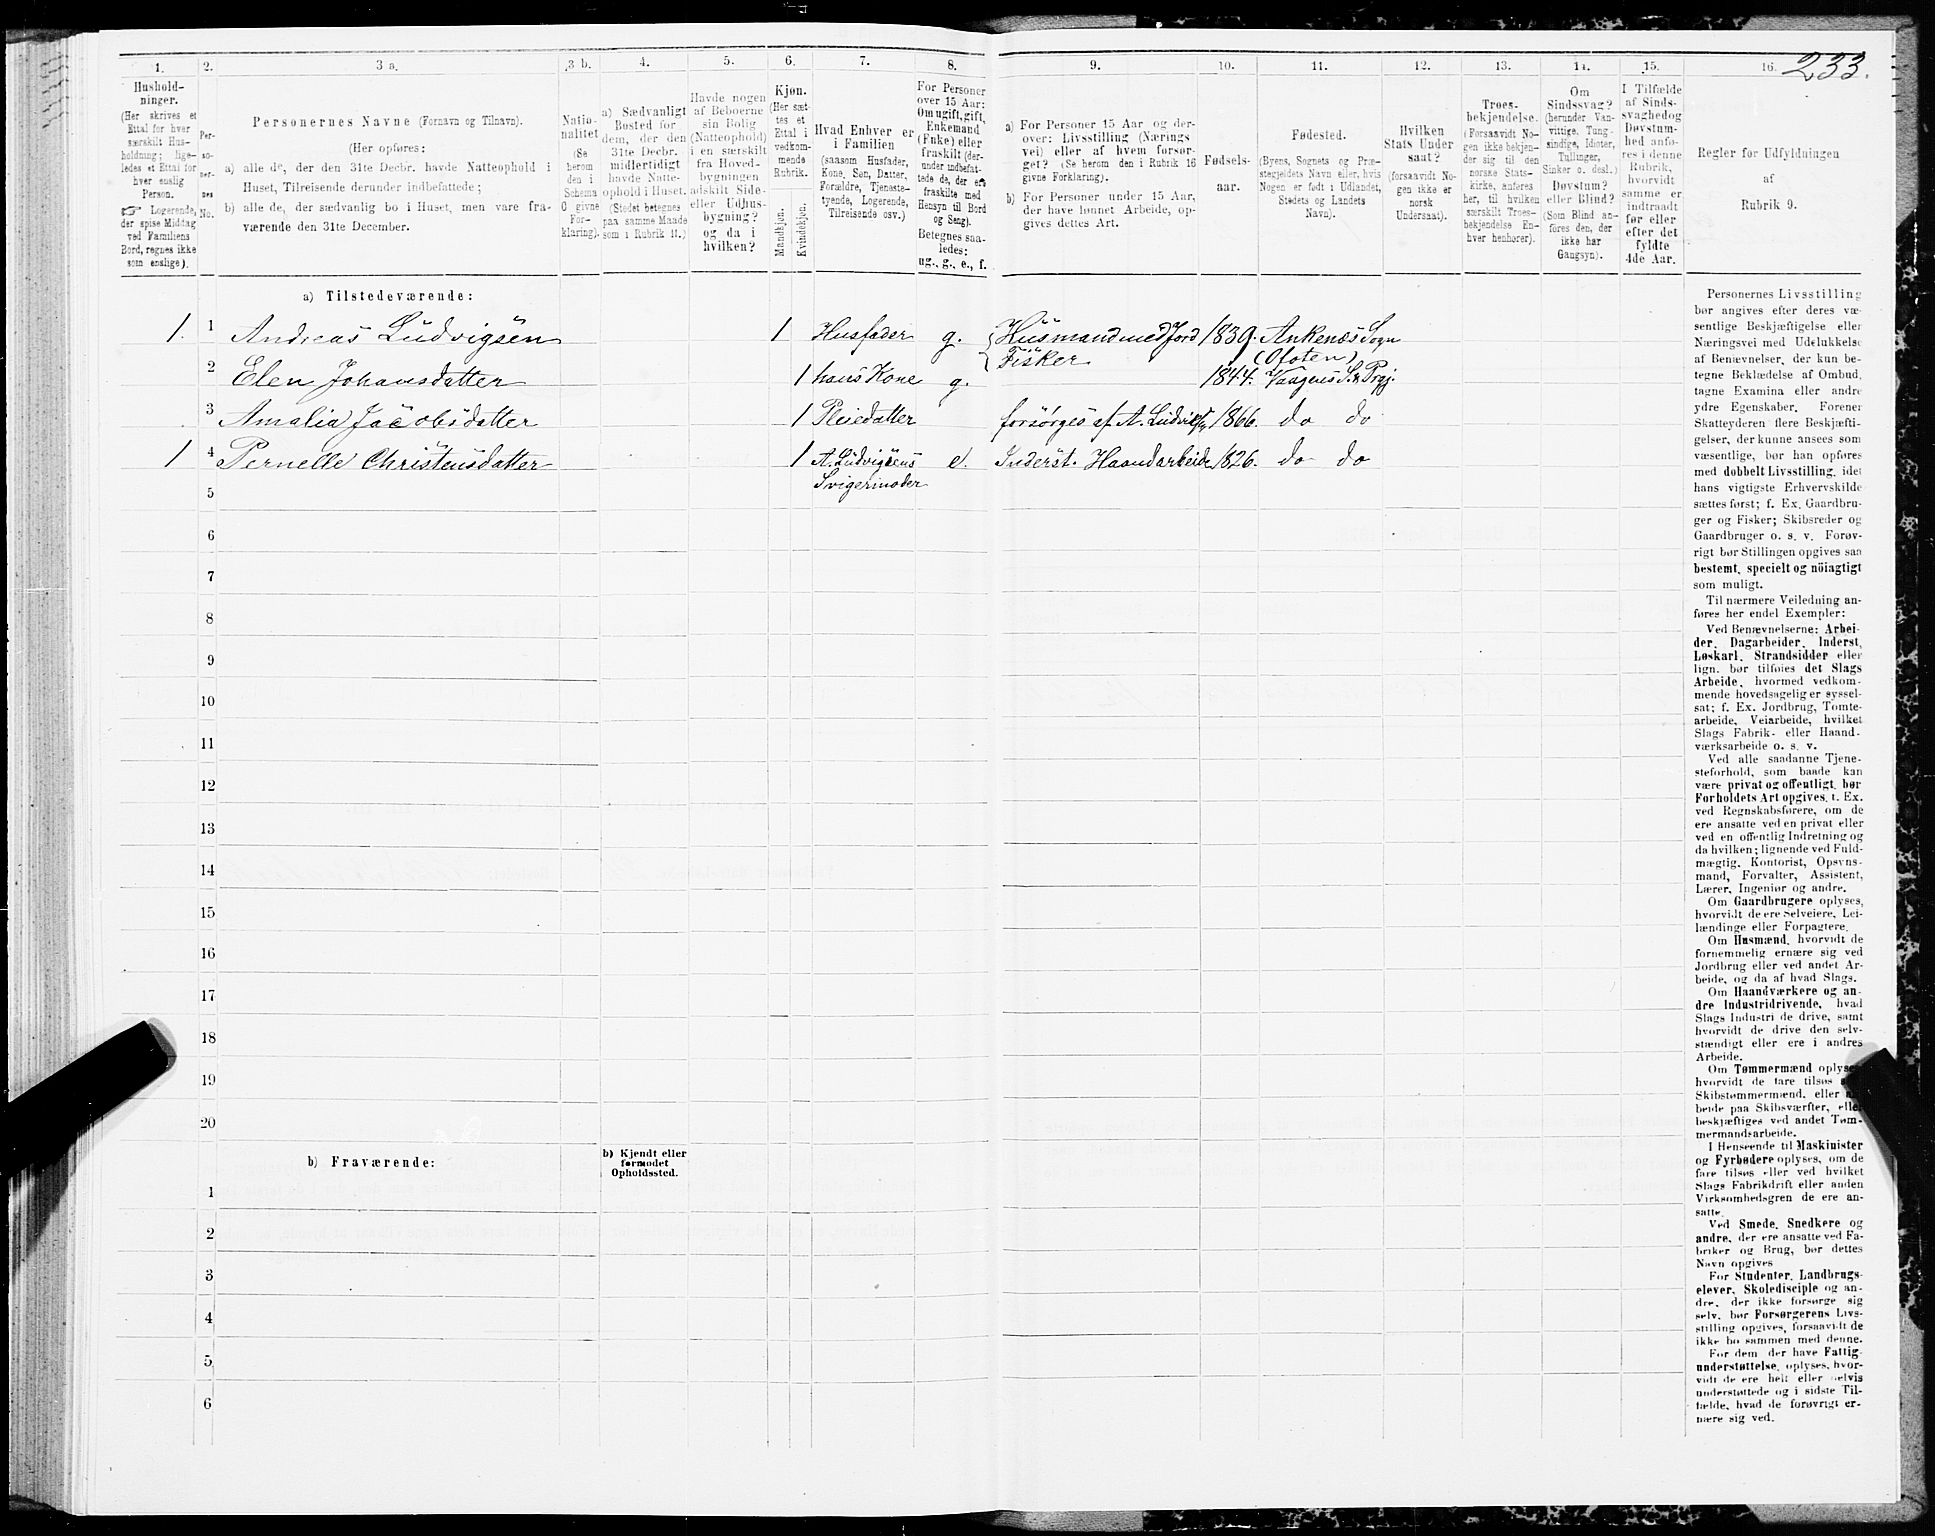 233.
1.
Hushold-
ninger.
(Her skrives et
Ettal for hver
særskilt Hus-
holdning; lige-
ledes et Ettal for
hver enslig
Person.
☞ Logerende,
der spise Middag
ved Familiens
Bord, regnes ikke
som enslige).
2.
Per-
so-
ner-
nes
No.
3 a.
Personernes Navne (Fornavn og Tilnavn).
(Her opføres:
a) alle de, der den 31te Decbr. havde Natteophold i
Huset, Tilreisende derunder indbefattede;
b) alle de, der sædvanlig bo i Huset, men vare fra-
værende den 31te December.
3 b.
Natio-
nalitet
(Se
herom
den i
Schema
C givne
For-
klaring).
4.
a) Sædvanligt
Bosted for
dem, der den
31te Decbr.
midlertidigt
havde Natte-
ophold i Huset.
(Stedet betegnes
paa samme Maade
som i Rubrik 11.)
5.
Havde nogen
af Beboerne
sin Bolig
(Natteophold)
i en særskilt
fra Hoved-
bygningen
adskilt Side-
eller Udhus-
bygning?
og da i
hvilken?
6.
Kjøn.
(Her sæt-
tes et
Ettal i
vedkom-
mende
Rubrik.
Mandkjøn.
Kvindekjøn.
7.
Hvad Enhver er
i Familien
(saasom Husfader,
Kone, Søn, Datter,
Forældre, Tjeneste-
tyende, Logerende,
Tilreisende osv.)
8.
For Personer
over 15 Aar:
Om ugift, gift,
Enkemand
(Enke) eller
fraskilt (der-
under indbefat-
tede de, der ere
fraskilte med
Hensyn til Bord
og Seng).
Betegnes saa-
ledes:
ug., g., e., f.
9.
a) For Personer 15 Aar og der-
over: Livsstilling (Nærings
vei) eller af hvem forsør-
get? (Se herom den i Rubrik 16
givne Forklaring).
b) For Personer under 15 Aar,
der have lønnet Arbeide, op-
gives dettes Art.
10.
Fødsels-
aar.
11.
Fødested.
(Byens, Sognets og Præ-
stegjeldets Navn eller, hvis
Nogen er født i Udlandet,
Stedets og Landets
Navn).
12.
Hvilken
Stats Under
saat?
(forsaavidt No-
gen ikke er
norsk
Undersaat).
13.
Troes-
bekjendelse.
(Forsaavidt No-
gen ikke bekjen-
der sig til den
norske Stats-
kirke, anføres
her, til hvilken
særskilt Troes-
bekjendelse En-
hver henhører).
14.
Om
Sindssvag?
(herunder Van-
vittige, Tung-
sindige, Idioter,
Tullinger,
Sinker o. desl.)
Døvstum?
eller Blind?
(Som Blind an-
føres den, der
ikke har
Gangsyn).
15.
I Tilfælde
af Sinds-
svaghed og
Døvstum-
hed anfø-
res i denne
Rubrik,
hvorvidt
samme er
indtraadt
før eller
efter det
fyldte
4de Aar.
16.
Regler for Udfyldningen
af
Rubrik 9.
a) Tilstedeværende:
1. 1 Andreas Ludvigsen 1 Husfader g. Husmand med Jord 1839. Ankenæs Sogn
Fisker (Ofoten)
2 Elen Johansdatter 1 hans Kone g. 1844. Vaagens S. & Prgj.
3 Amalia Jacobsdatter 1 Pleiedatter forsørges af A. Ludvigsen 1866. do do
1 4 Pernelle Christensdatter 1 A. Ludvigsens e. Inderst. Haandarbeide 1826. do do
Svigermoder
5
6
7
8
9
10
11
12
13
14
15
16
17
18
19
20
b) Fraværende:
b) Kjendt eller
formodet
Opholdssted.
1
2
3
4
5
6
Personernes Livsstilling
bør angives efter deres væ-
sentlige Beskjæftigelse eller
Næringsvei med Udelukkelse
af Benævnelser, der kun be-
tegne Beklædelse af Ombud,
tagne Examina eller andre
ydre Egenskaber. Forener
Skatteyderen flere Beskjæfti-
gelser, der kunne ansees som
væsentlige, bør han opføres
med dobbelt Livsstilling, idet
hans vigtigste Erhvervskilde
sættes først; f. Ex. Gaardbru-
ger og Fisker; Skibsreder og
Gaardbruger o. s. v. Forøv-
rigt bør Stillingen opgives saa
bestemt, specielt og nöiagtigt
som muligt.
Til nærmere Veiledning an-
føres her endel Exempler:
Ved Benævnelserne: Arbei-
der, Dagarbeider, Inderst,
Løskarl, Strandsidder eller
lign. bør tilføies det Slags
Arbeide, hvormed vedkom-
mende hovedsagelig er syssel-
sat; f. Ex. Jordbrug, Tomte-
arbeide, Veiarbeide, hvilket
Slags Fabrik- eller Haand-
værksarbeide o. s. v.
Ved alle saadanne Tjene-
steforhold, som baade kan
være privat og offentligt, bør
Forholdets Art opgives, f. Ex.
ved Regnskabsførere, om de
ere ansatte ved en privat eller
ved en offentlig Indretning og
da hvilken; lignende ved Fuld-
mægtig, Kontorist, Opsyns-
mand, Forvalter, Assistent,
Lærer, Ingeniør og andre.
Om Gaardbrugere oplyses,
hvorvidt de ere Selveiere, Lei-
lændinge eller Forpagtere.
Om Husmænd, hvorvidt de
fornemmelig ernære sig ved
Jordbrug eller ved andet Ar-
beide, og da af hvad Slags.
Om Haandværkere og an-
dre Industridrivende, hvad
Slags Industri de drive, samt
hvorvidt de drive den selv-
stændigt eller ere i andres
Arbeide.
Om Tømmermænd oplyses,
hvorvidt de fare tilsøs
Skibstømmermænd, eller
beide paa Skibsværfter, eller
beskjæftiges ved andet Tøm-
mermandsarbeide.
I Henseende til Maskinister
og Fyrbødere oplyses, om de
fare tilsøs eller ved hvilket
Slags Fabrikdrift eller anden
Virksomhedsgren de ere an-
satte.
Ved Smede, Snedkere og
andre, der ere ansatte ved Fa-
briker og Brug, bør dettes
Navn opgives
For Studenter, Landbrugs-
elever, Skoledisciple og an-
dre, der ikke forsørge sig
selv, bør Forsørgerens Livs-
stilling opgives, forsaavidt de
ikke bo sammen med denne.
For dem, der have Fattig-
understøttelse, oplyses, hvor-
vidt de ere helt eller delvis
understøttede og i sidste Til-
fælde, hvad de forøvrigt er-
nære sig ved.